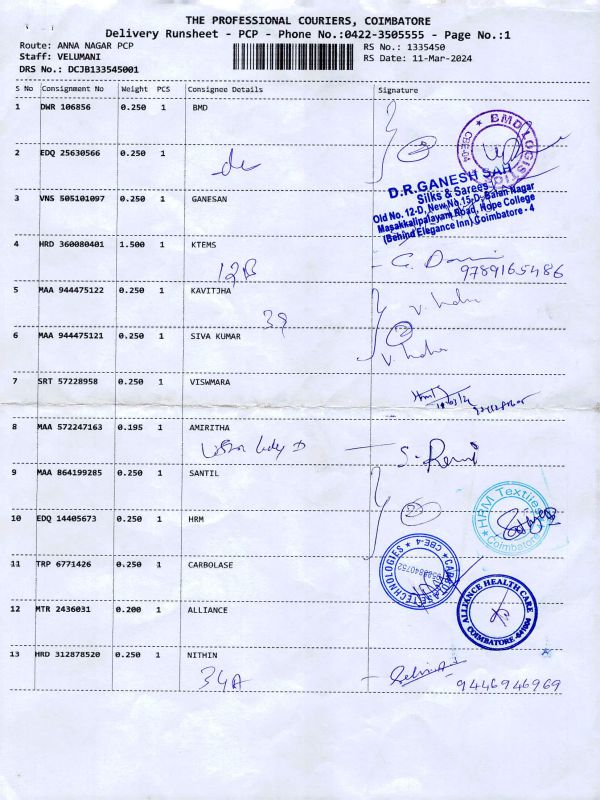 THE PROFESSIONAL COURIERS, COIMBATORE
Delivery Runsheet - PCP - Phone No.:0422-3505555 - Page No.:1
Route: ANNA NAGAR PCP RS No.: 1335450
Staff: VELUMANI RS Date: 11-Mar-2024
DRS No.: DCJB133545001
S No Consignment No Weight PCS Consignee Details Signature
1 DWR 106856 0.250 1 BMD
BMD LOGISTICS
CBE-04
2 EDQ 25630566 0.250 1
D.R.GANESH SAH
Silks & Sarees
Old No. 12-D, New No.15-D, Balan Nagar
Masakkalipalayam Road, Hope College
(Behind Elegance Inn) Coimbatore - 4
3 VNS 505101097 0.250 1 GANESAN
4 HRD 360080401 1.500 1 KTEMS
12B
9789165486
5 MAA 944475122 0.250 1 KAVITJHA
39
6 MAA 944475121 0.250 1 SIVA KUMAR
2
7 SRT 57228958 0.250 1 VISWMARA
8 MAA 572247163 0.195 1 AMIRITHA
9 MAA 864199285 0.250 1 SANTIL
2
10 EDQ 14405673 0.250 1 HRM
HRM Textiles
Coimbatore
11 TRP 6771426 0.250 1 CARBOLASE
TECHNOLOGIES
CBE-4
12 MTR 2436031 0.200 1 ALLIANCE
ALLIANCE HEALTH CARE
COIMBATORE
13 HRD 312878520 0.250 1 NITHIN
34A
9446946969